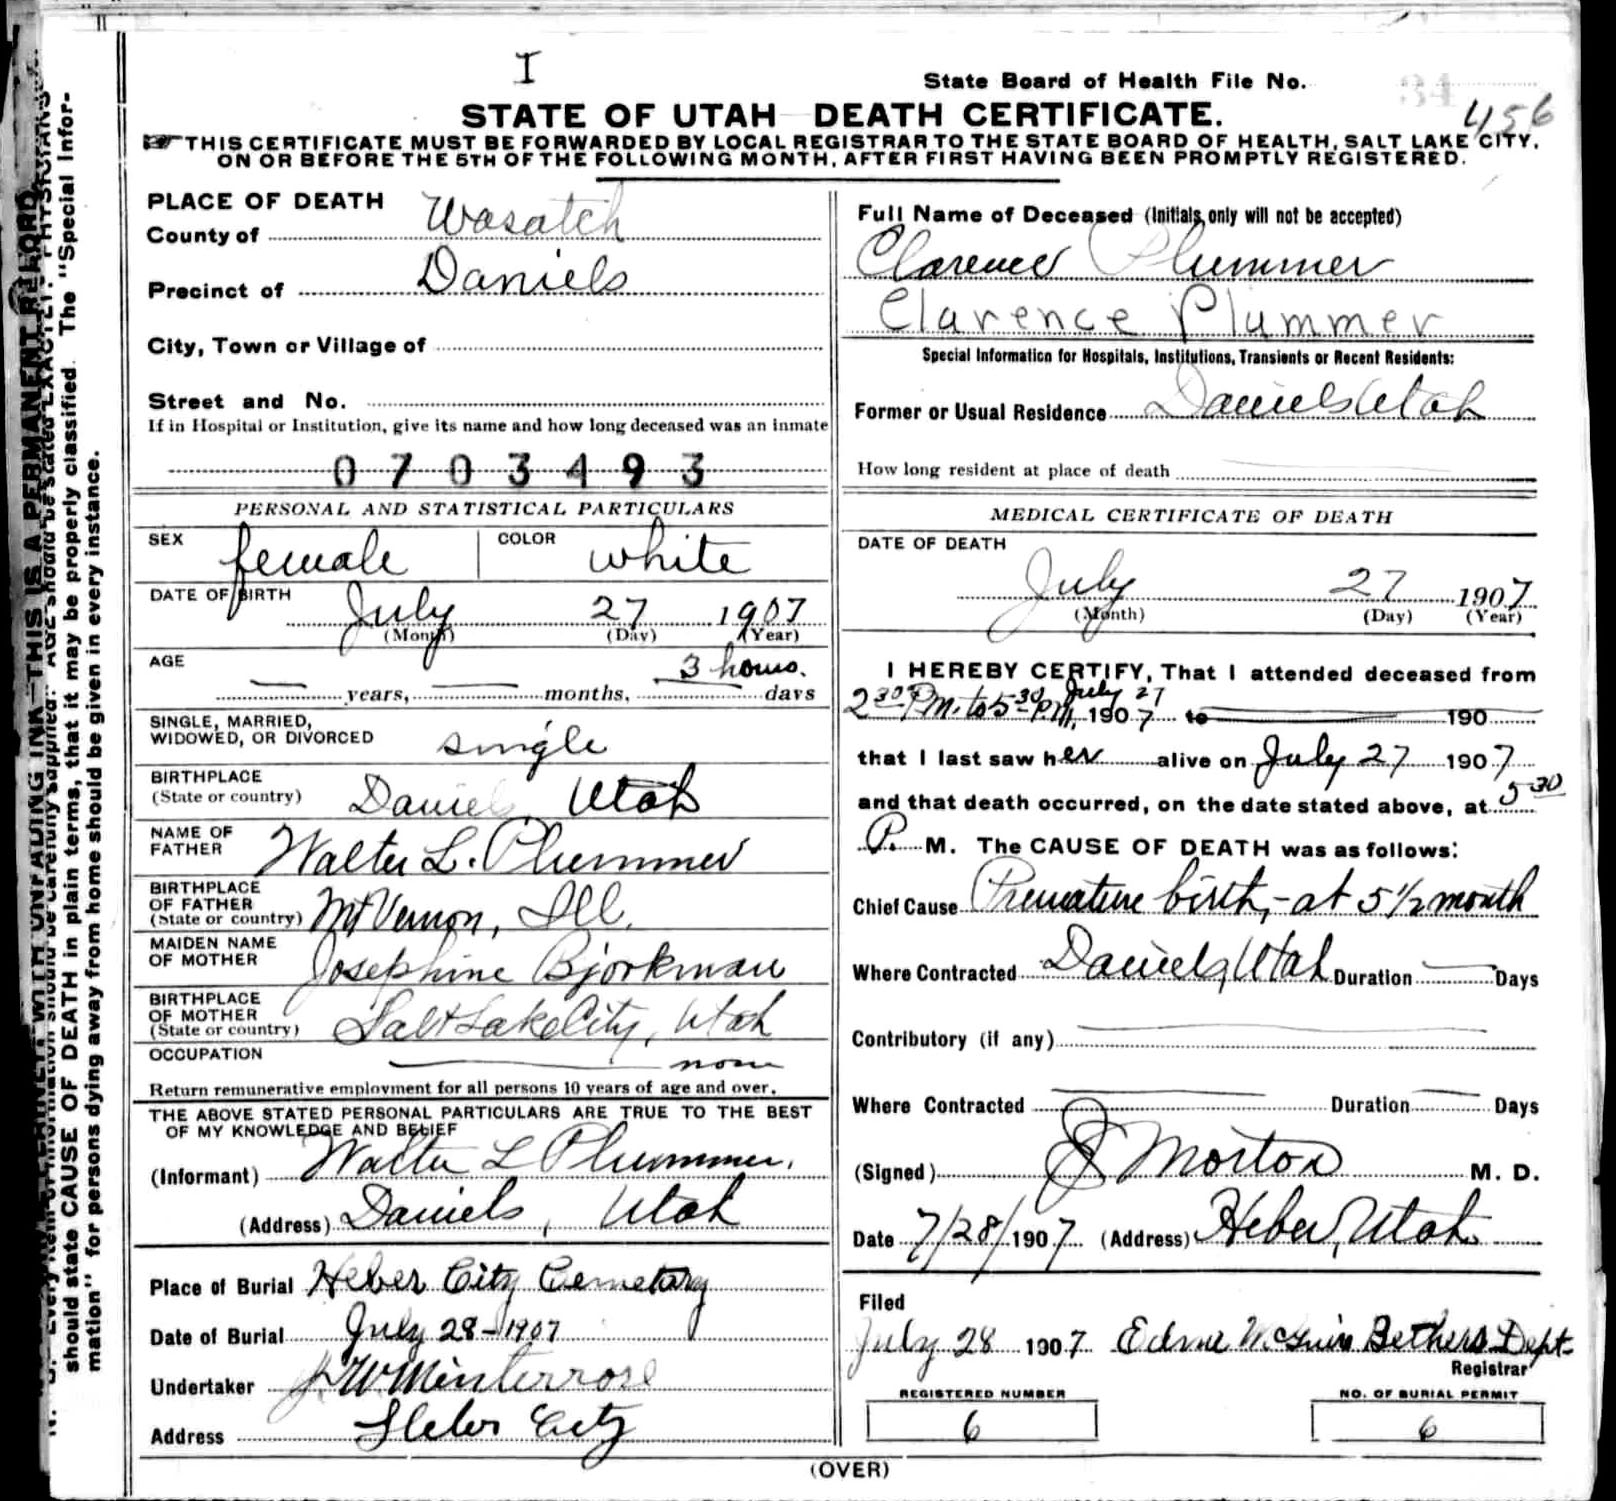 I
State Board of Health File No. 34
456
STATE OF UTAH DEATH CERTIFICATE.
THIS CERTIFICATE MUST BE FORWARDED BY LOCAL REGISTRAR TO THE STATE BOARD OF HEALTH, SALT LAKE CITY,
ON OR BEFORE THE 5TH OF THE FOLLOWING MONTH, AFTER FIRST HAVING BEEN PROMPTLY REGISTERED.
PLACE OF DEATH
County of Wasatch
Precinct of Daniels
City, Town or Village of
Street and No.
If in Hospital or Institution, give its name and how long deceased was an inmate
0703493
PERSONAL AND STATISTICAL PARTICULARS
SEX female COLOR white
DATE OF BIRTH
July 27 1907
(Month) (Day) (Year)
AGE 3 hours.
years, months, days
SINGLE, MARRIED,
WIDOWED, OR DIVORCED single
BIRTHPLACE
(State or country) Daniels, Utah
NAME OF
FATHER Walter L. Plummer
BIRTHPLACE
OF FATHER
(State or country) Mt Vernon, Ill.
MAIDEN NAME
OF MOTHER Josephine Bjorkman
BIRTHPLACE
OF MOTHER
(State or country) Salt Lake City, Utah
OCCUPATION none
Return remunerative employment for all persons 10 years of age and over.
THE ABOVE STATED PERSONAL PARTICULARS ARE TRUE TO THE BEST
OF MY KNOWLEDGE AND BELIEF
(Informant) Walter L Plummer.
(Address) Daniels, Utah
Place of Burial Heber City Cemetary
Date of Burial July 28-1907
Undertaker Winterrose
Address Heber City
Full Name of Deceased (Initials only will not be accepted)
Clarence Plummer
Clarence Plummer
Special Information for Hospitals, Institutions, Transients or Recent Residents:
Former or Usual Residence Daniels Utah
How long resident at place of death
MEDICAL CERTIFICATE OF DEATH
DATE OF DEATH
July 27 1907
(Month) (Day) (Year)
I HEREBY CERTIFY, That I attended deceased from
2 30 P.M. to 5 30 P.M, July 27 1907 to 190
that I last saw her alive on July 27 1907
and that death occurred, on the date stated above, at 5 30
P. M. The CAUSE OF DEATH was as follows:
Chief Cause Premature birth,-at 5 1/2 month
Where Contracted Daniels, Utah Duration Days
Contributory (if any)
Where Contracted Duration Days
(Signed) Morton M. D.
Date 7/28/1907 (Address) Heber, Utah
Filed
July 28 1907 Bethers Dept.
Registrar
REGISTERED NUMBER
6
NO. OF BURIAL PERMIT
6
(OVER)
THIS IS A PERMANENT RECORD
AGE should be stated EXACTLY. PHYSICIANS
should state CAUSE OF DEATH in plain terms, that it may be properly classified. The "Special Infor-
mation" for persons dying away from home should be given in every instance.